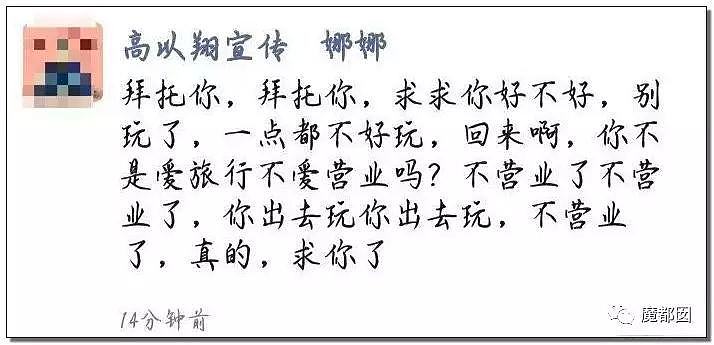 高以翔宣传 娜娜
拜托你，拜托你，求求你好不好，别
玩了，一点都不好玩，回来啊，你不
是爱旅行不爱营业吗？不营业了不营
业了，你出去玩你出去玩，不营业
了，真的，求你了
14分钟前
魔都囡